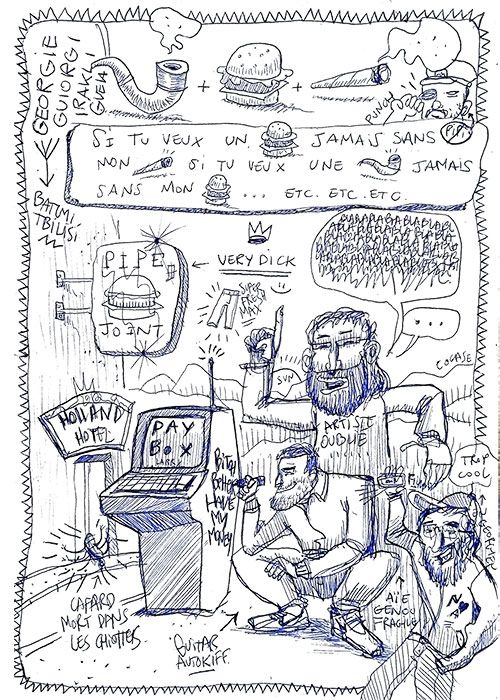 GEORGIE
GUIORGI
IRAKLI
GUELA
BATUMI
TBILISI
+
+
PIPE
SI TU VEUX UN JAMAIS SANS
MON SI TU VEUX UNE JAMAIS
SANS MON ... ETC. ETC. ETC.
PIPE
JOINT
← VERY DICK
SUPER
MAX
BLABLABLABLABLABLABLA
...
COCASE
SUN
ARTISTE
OUBLIÉ
HOLLAND
HOTEL
PAY
BOX
BITCH
BETTER
HAVE
MY
MONEY
TROP
COOL
AÏE
GENOU
FRAGILE
CAFARD
MORT DANS
LES CHIOTTES
GUITAR
AUTOKIFF